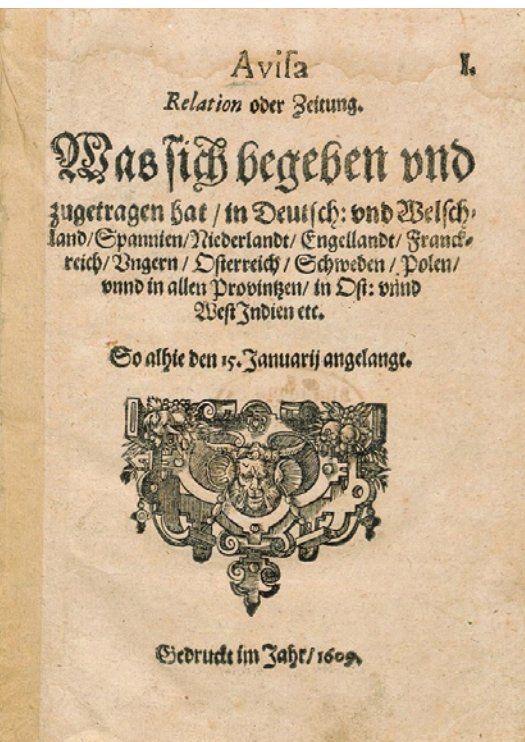 Avisa
I.
Relation oder Zeitung.
Was sich begeben vnd
zugetragen hat / in Deutsch: vnd Welsch-
land/Spannien/Niederlandt/Engellandt/Franck-
reich/Vngern/Osterreich/Schweden/Polen/
vnnd in allen Provintzen/in Ost: vnnd
WestIndien etc.
So alhie den 15. Januarij angelangt.
Gedruckt im Jahr/1609.